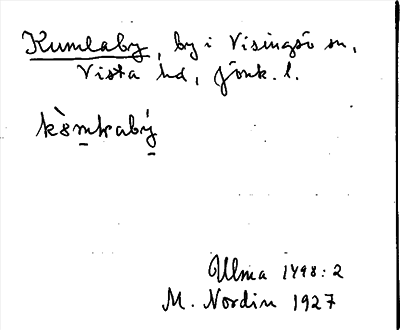 Kumlaby, by i Visingsö sn,
Vista hd, Jönk. l.
kს̀m̠kabý̠
Ulma 1498:2
M. Nordin 1927